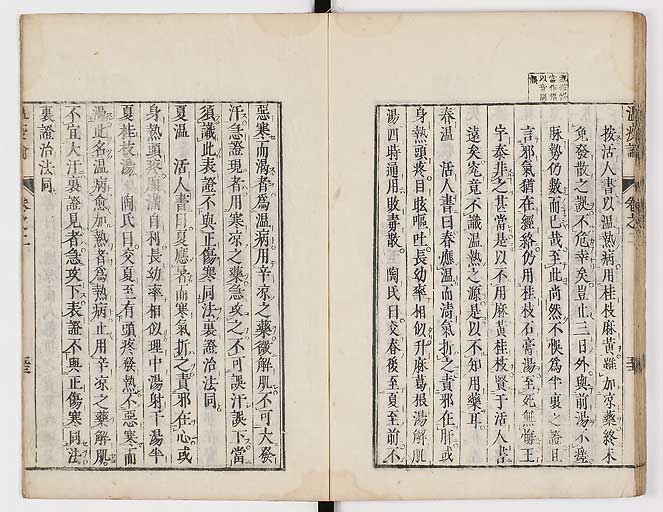 按活人書以溫熱病用桂枝麻黃雖加凉藥終未
免發散之誤不危幸矣豈止三日外與前湯不瘥
脉勢仍數而已哉至此尚然不悞爲半裏之證且
言邪氣猶在經絡仍用桂枝石膏湯至死無悔王
宇泰非之甚當是以不用麻黃桂枝賢于活人書
遠矣究竟不識溫熱之源是以不知用藥耳
春溫 活人書曰春應溫而淸氣折之責邪在肝或
身熱頭疼目眩嘔吐長幼率相似升麻葛根湯解肌
湯四時通用敗毒散 陶氏曰交春後至夏至前不
惡寒而渴者爲溫病用辛凉之藥微解肌不可大發
汗急證現者用寒凉之藥急攻之不可誤汗誤下當
須識此表證不與正傷寒同法裏證治法同
夏溫 活人書曰夏應暑而寒氣折之責邪在心或
身熱頭疼腹滿自利長幼率相似理中湯射干湯半
夏桂枝湯 陶氏曰交夏至有頭疼發熱不惡寒而
渴此名溫病愈加熱者爲熱病止用辛凉之藥解肌
不宜大汗裏證見者急攻下表證不與正傷寒同法
裏證治法同